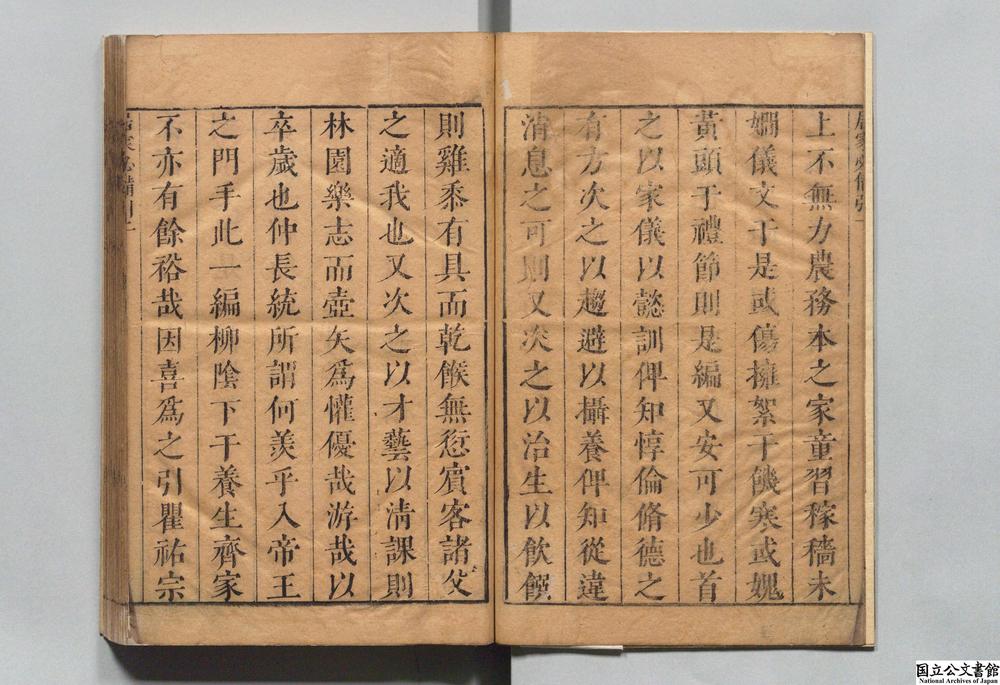 上不無力農務本之家童習稼穡未
嫺儀文于是或傷擁絮于饑寒或媿
黃頭于禮節則是編又安可少也首
之以家儀以懿訓俾知惇倫脩德之
有方次之以趨避以攝養俾知從違
消息之可則又次之以治生以飲饌
則雞黍有具而乾餱無愆賓客諸父
之適我也又次之以才藝以清課則
林園樂志而壺矢為懽優哉游哉以
卒歲也仲長統所謂何羨乎入帝王
之門手此一編柳陰下干養生齊家
不亦有餘裕哉因喜為之引瞿祐宗
居家必備引二
国立公文書館
National Archives of Japan